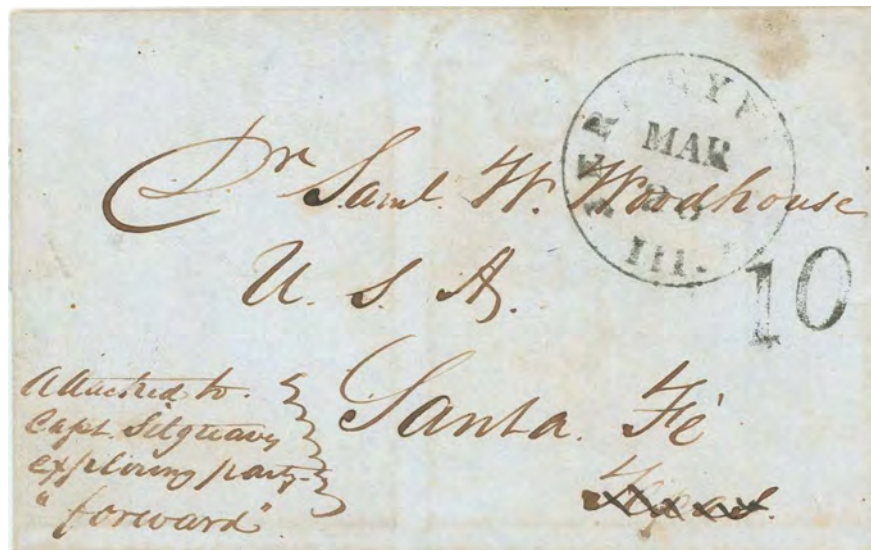 MAR
Ill.
10
Dr Saml. W. Woodhouse
U. S. A.
Santa. Fé
Texas.
Attached to.
Capt. Sitgreaves
exploring party.
"forward"